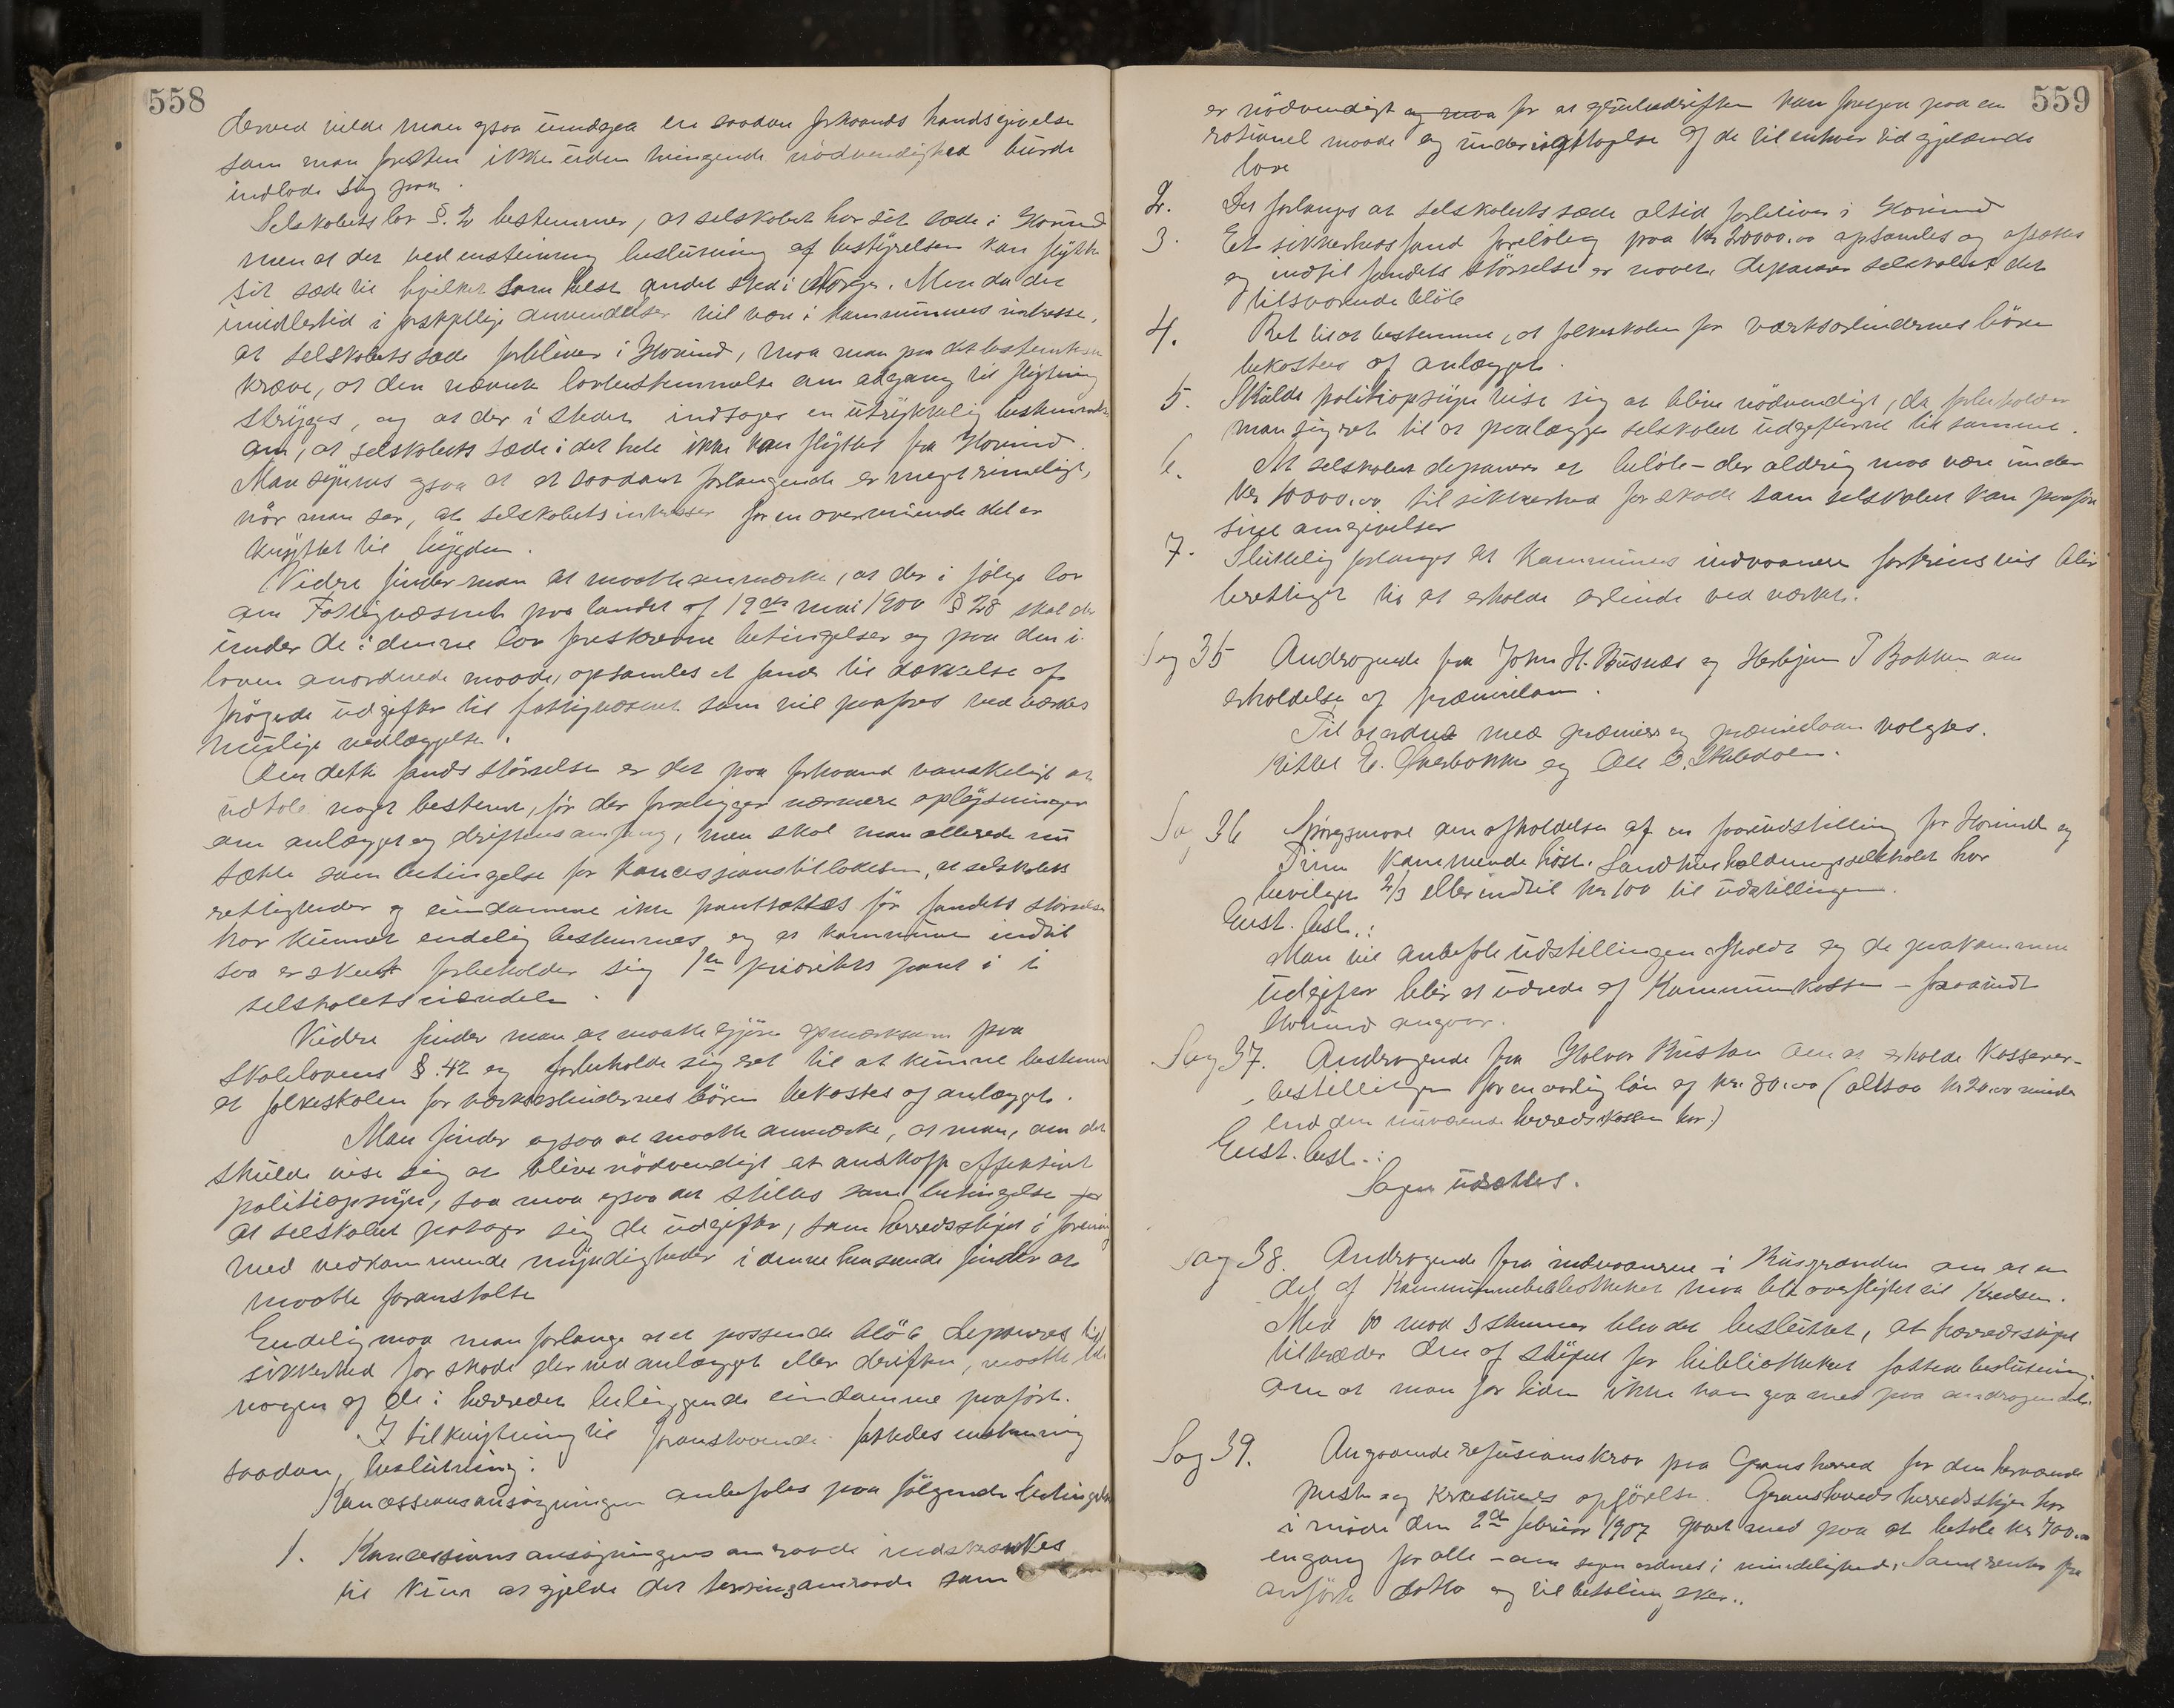 558
derved vilde man ogsaa undgaa en saadan forhaands handsgivelse
som man forresten ikke uden tvingende nødvendighed burde
indlade sig paa.
Selskabets lov §. 2 bestemmer, at selskabet har sit sæde i Hovind
men at det ved enstemmig beslutning af bestyrelsen kan flytte
sit sæde til hvilket som helst andet sted i Norge. Men da det
imidlertid i forskjellige anvendelser vil være i kommunens intresse,
at selskabets sæde forbliver i Hovind, maa man paa det bestemteste
kræve, at den nævnte lovbestemmelse om adgang til flytning
stryges, og at der i stedet indtages en utrykkelig bestemmelse
om, at selskabets sæde i det hele ikke kan flyttes fra Hovind.
Man synes ogsaa at et saadant forlangende er meget rimeligt,
når man ser, at selskabets intresser for en overveiende del er
knyttet til bygden.
Videre finder man at maatte anmærke, at der i følge lov
om Fattigvæsenet paa landet af 19de mai 1900 § 28 skal der
under de i denne lov foreskrevne betingelser og paa den i
loven anordnede maade, opsamles et fond til dækkelse af
forøgede udgifter til fattigvæsenet som vil paaføres ved værkets
mulige nedlæggelse.
Om dette fonds størrelse er det paa forhaand vanskeligt at
udtale noget bestemt, før der foreligger nærmere oplysninger
om anlægget og driftens omfang, men skal man allerede nu
sætte som betingelse for koncessjonstilladelsen, at selskabets
rettigheder og eiendomme ikke pantsættes før fondets størrelse
har kunnet endelig bestemmes og at kommunen indtil
saa er skeet forbeholder sig 1ste prioritets pant i
selskabets eiendele.
Videre finder man at maatte gjøre opmærksom paa
skolelovens §. 42 og forbeholde sig ret til at kunne bestemme
at folkeskolen for værksarbeidernes børn bekostes af anlægget.
Man finder ogsaa at maatte anmærke, at man, om det
skulde vise sig at blive nødvendigt at anskaffe effektivt
politiopsyn, saa maa ogsaa det stilles som betingelse
at selskabet paatager sig de udgifter, som herredsstyret i forening
med vedkommende myndigheder i denne henseende finder at
maatte foranstalte
Endelig maa man forlange at et passende beløb deponeres til
sikkerhed for skade der ved anlægget eller driften, maatte blive
nogen af de i herredet beliggende eiendomme paaført.
I tilknytning til foranstaaende fattedes enstemmig
saadan beslutning:
Koncessionsansøgningen anbefales paa følgende betingelser
1. Koncessionsansøgningens omraade indskrænkes
til kun at gjelde det terrængomraade som
559
er nødvendigt og maa for at grubedriften kan foregaa paa en
rationel maade og under iagttagelse af de til enhver tid gjeldende
love
2. Det forlanges at selskabets sæde altid forbliver i Hovind
3. Et sikkerhedsfond foreløbig paa kr 20000.00 opsamles og afsættes
og indtil fondets størrelse er naaet deponerer selskabet det
tilsvarende beløb
4. Ret til at bestemme, at folkeskolen for værksarbeidernes børn
bekostes af anlægget.
5. Skulde politiopsyn vise sig at blive nødvendigt, da forbeholder
man sig ret til at paalægge selskabet udgifterne til samme.
6. At selskabet deponerer et beløb – der aldrig maa være under
kr 10000.00 til sikkerhed for skade som selskabet kan paaføre
sine omgivelser
7. Sluttelig forlanges at kommunens indvaanere fortrinsvis blir
berettiget til at erholde arbeide ved værket.
Sag 35 Andragende fra John H. Busnes og Herbjørn T Bakken om
erholdelse af præmielaan.
Til at ordne med præmier og præmielaan valgtes.
Kittel E. og Ole O. Skuledalen.
Sag 36 Spørgsmaal om afholdelse af en faareudstilling for Hovind og
Tinn kommende høst. Landhusholdningsselskabet har
bevilget 2/3 eller indtil kr 100 til udstillingen.
Enst. besl.:
Man vil anbefale udstillingen afholdt og de paakommne
udgifter blir at udrede af Kommunekassen – forsaavidt
Hovind angaar.
Sag 37. Andragende fra Halvor Bustan om at erholde kasserer-
bestillingen for en aarlig løn af kr. 80.00 (altsaa kr 20.00 mindre
end den nuværende herredskasserer har)
Enst. besl.:
Sagen udsættes.
Sag 38. Andragende fra indvaanerne i Busgrænden om at en
del af Kommunebibliotheket maa bli overflyttet til kredsen.
Med 10 mod 3 stemmer blev det besluttet, at herredsstyret
tiltræder den af styret for bibliotheket fattede beslutning
om at man for tiden ikke kan gaa med paa andragendet.
Sag 39. Angaaende refusionskrav paa Gransherred for den herværende
preste og kirkestues opførelse. Gransherreds herredsstyre har
i møde den 2den februar 1907 gaaet med paa at betale kr 700.00
engang for alle – om sagen ordnes i mindelighed. Samt renter fra
anførte datto og til betaling sker..